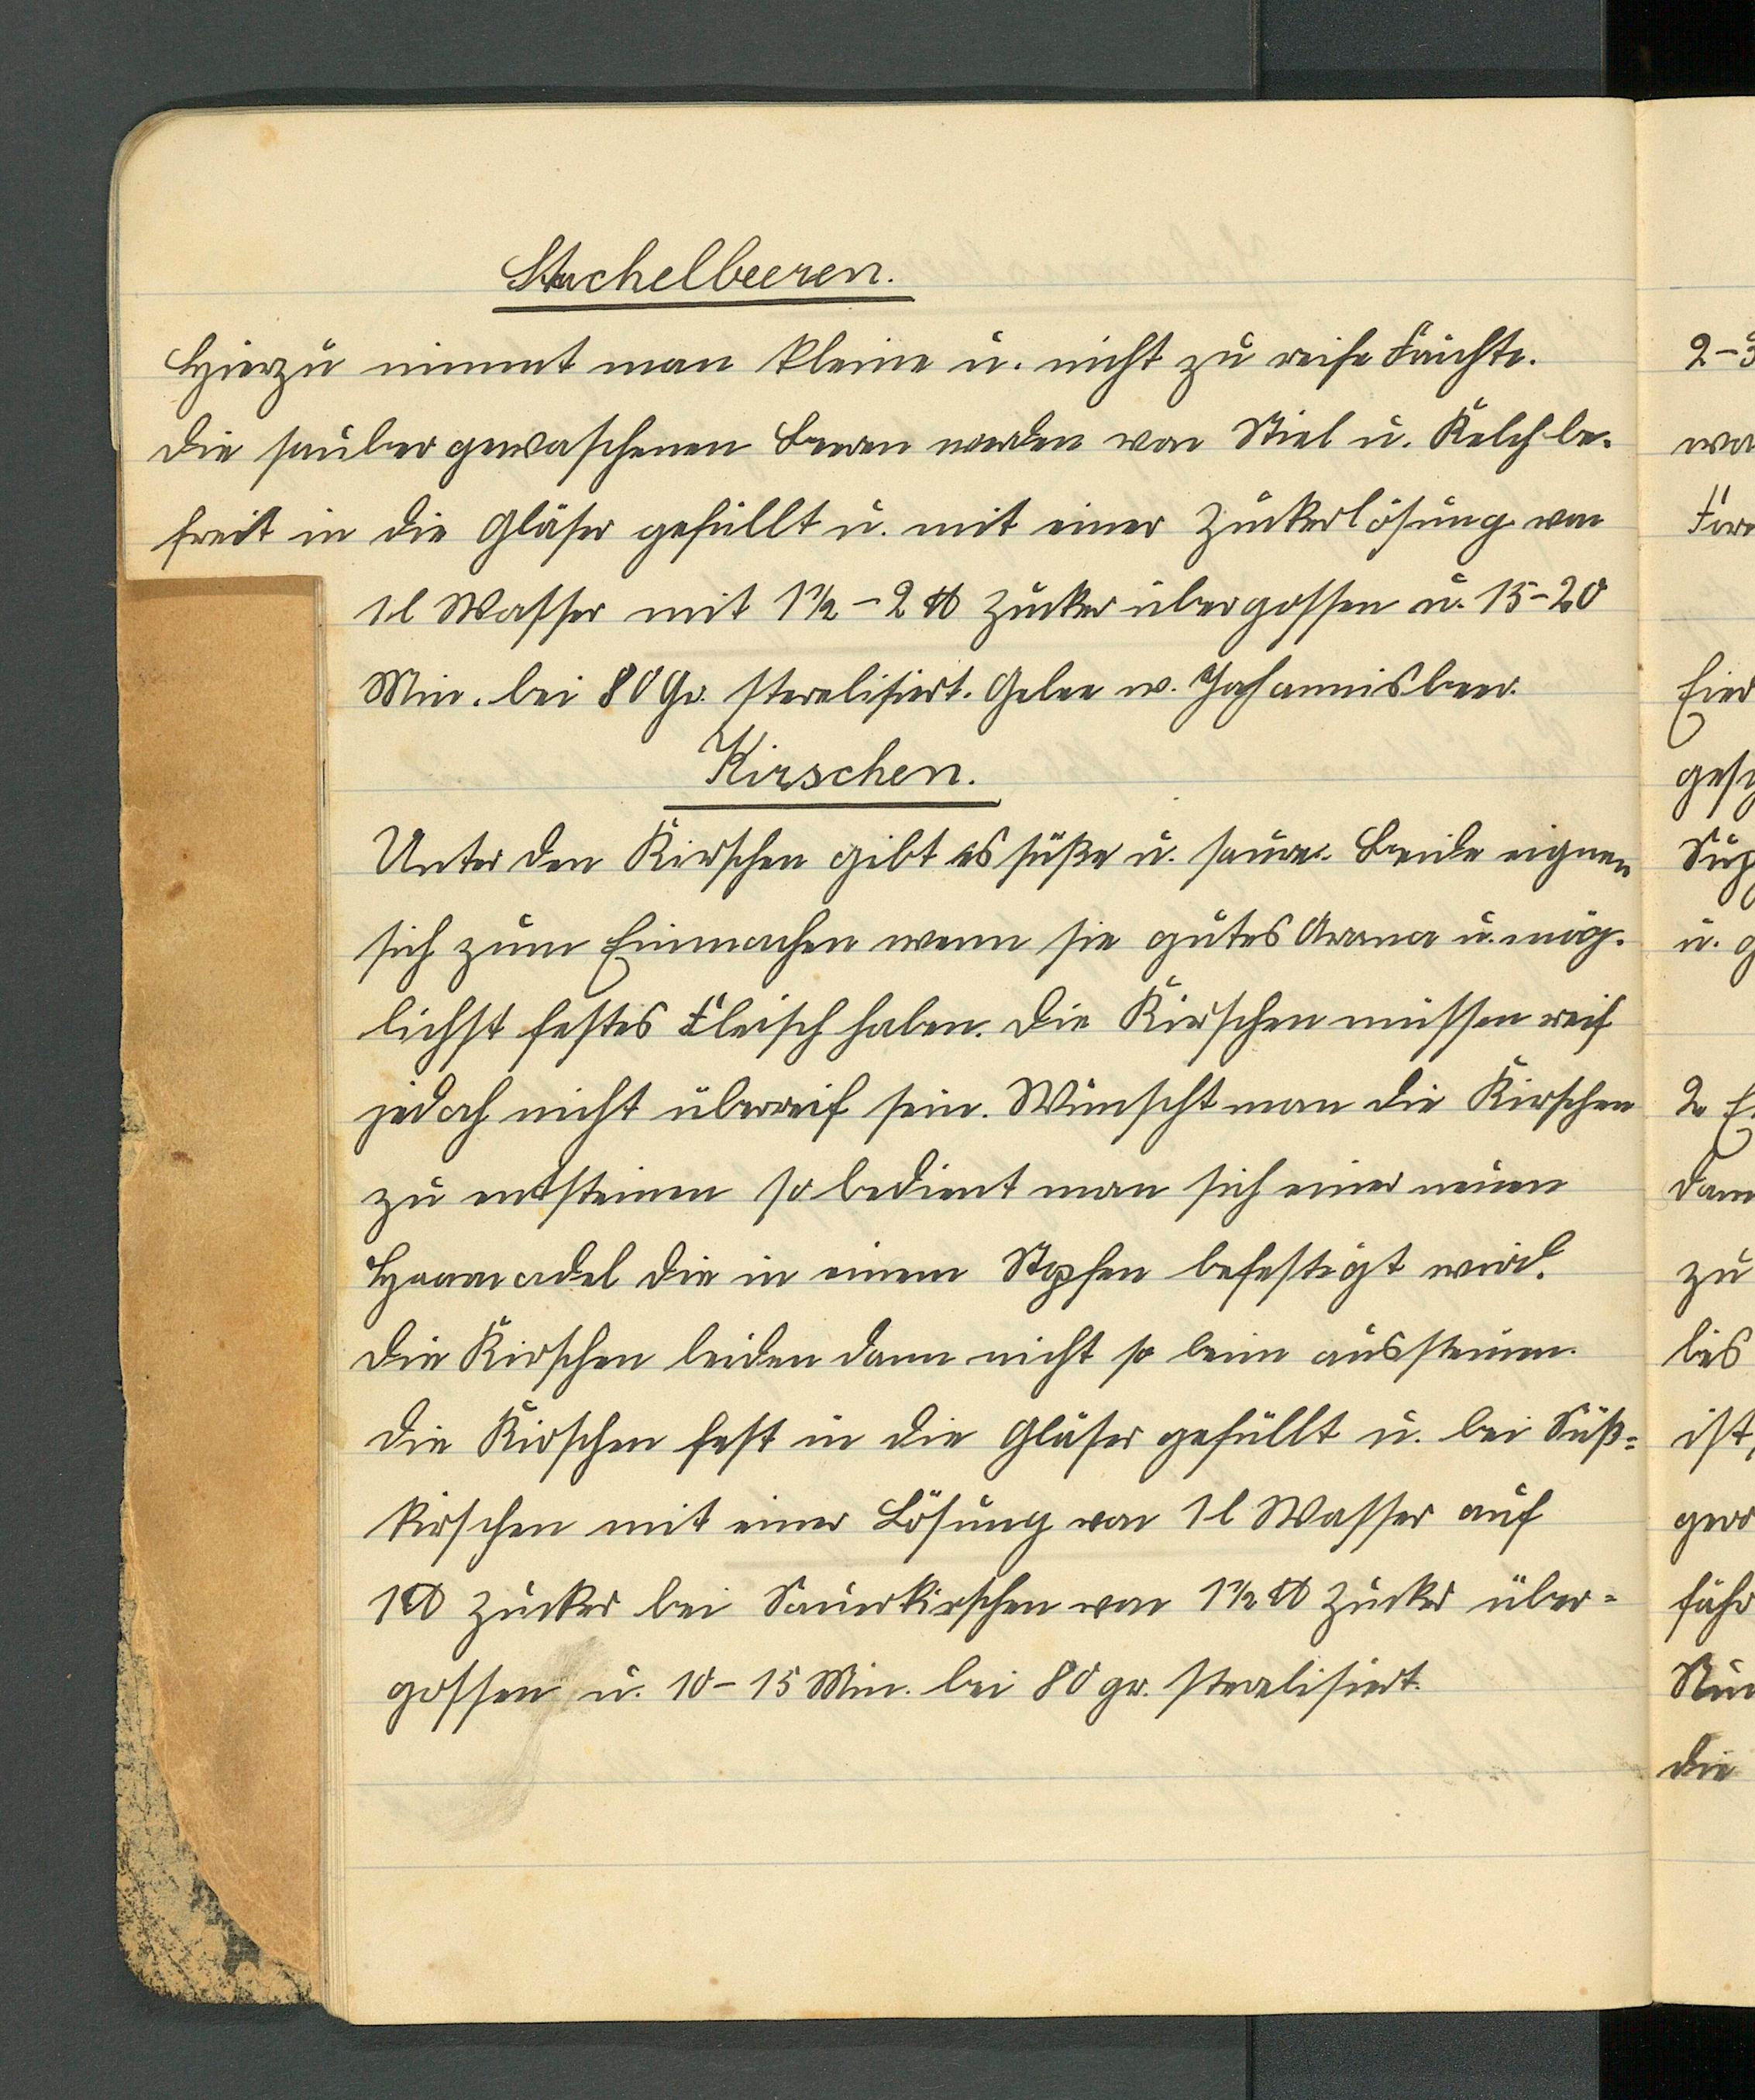 Stachelbeeren.
Hierzu nimmt man kleine u. nicht zu reife Früchte.
Die sauber gewaschenen Beeren werden von Stiel u. Kelch be-
freit in die Gläser gefüllt u. mit einer Zuckerlösung von
1 l Wasser mit 1½-2 ℔ Zucker übergossen u. 15-20
Min. bei 80 Gr. sterelisiert. Gelee w. Johannisbeer.
Kirschen.
Unter den Kirschen gibt es süße u. saure. Beide eignen
sich zum Einmachen wenn sie gutes Aroma u. mög-
lichst festes Fleisch haben. Die Kirschen müssen reif
jedoch nicht überreif sein. Wünscht man die Kirschen
zu entsteinen so bedient man sich einer neuen
Haarnadel die in einem Stopfen befestigt wird.
Die Kirschen leiden dann nicht so beim aussteinen.
Die Kirschen fest in die Gläser gefüllt u. bei Süß=
kirschen mit einer Lösung von 1 l Wasser auf
1 ℔ Zucker bei Sauerkirschen von 1½ ℔ Zucker über=
gossen u. 10-15 Min. bei 80 gr. sterelisiert.
2-3
zu
bis
ist,
die